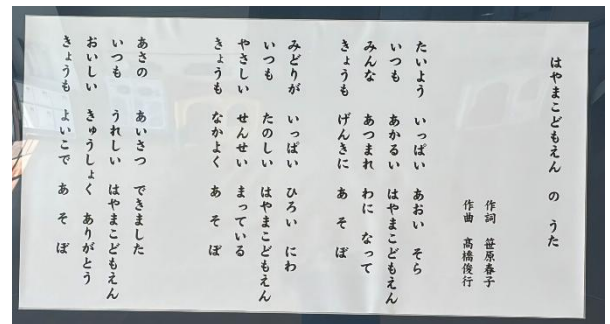 はやまこどもえん の うた
作詞 笹原春子
作曲 高橋俊行
たいよう いっぱい あおい そら
いつも あかるい はやまこどもえん
みんな あつまれ わに なって
きょうも げんきに あ そ ぼ
みどりが いっぱい ひろい にわ
いつも たのしい はやまこどもえん
やさしい せんせい まっている
きょうも なかよく あ そ ぼ
あさの あいさつ できました
いつも うれしい はやまこどもえん
おいしい きゅうしょく ありがとう
きょうも よいこで あ そ ぼ